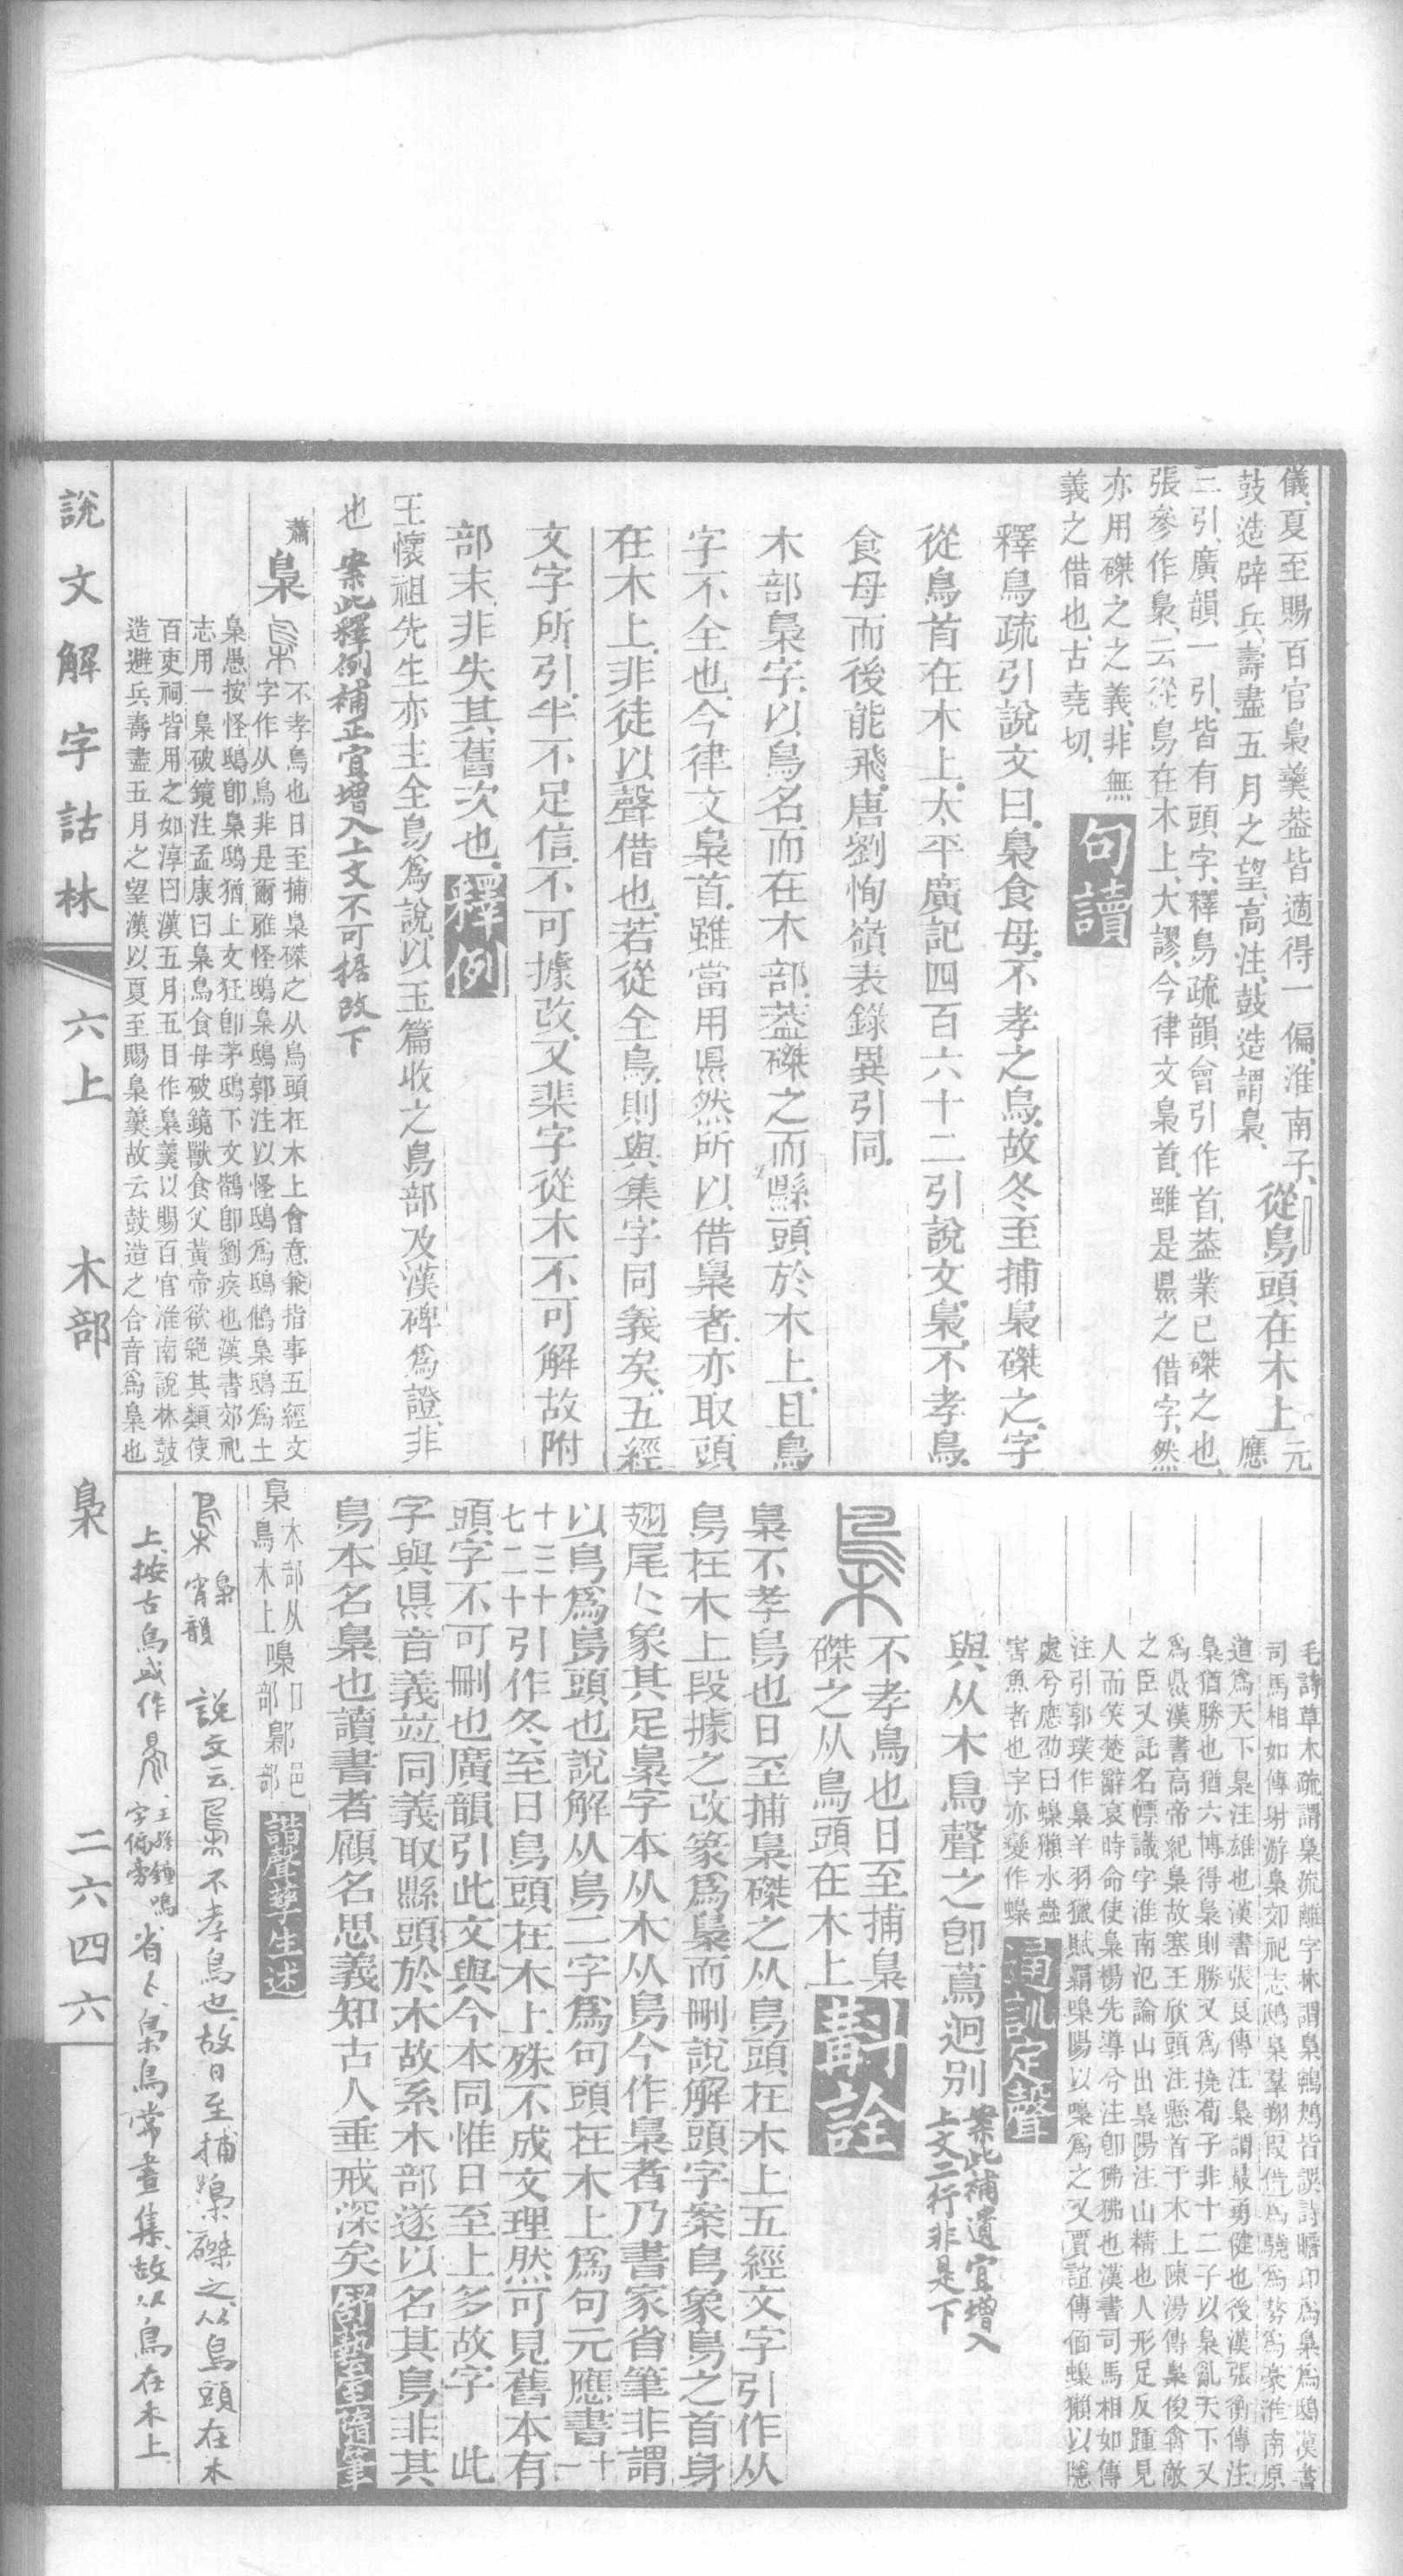 儀夏至賜百官梟羹葢皆適得一偏淮南子
鼓造辟兵壽盡五月之望高注鼓造謂梟
從鳥頭在木上
元應
三引廣韻一引皆有頭字釋鳥疏韻會引作首葢業已磔之也
張參作梟云從鳥在木上大謬今律文梟首雖是県之借字然
亦用磔之之義非無
義之借也古堯切
句讀
釋鳥疏引說文曰梟食母不孝之鳥故冬至捕梟磔之字
從鳥首在木上太平廣記四百六十二引說文梟不孝鳥
食母而後能飛唐劉恂嶺表錄異引同
木部梟字以鳥名而在木部葢磔之而縣頭於木上且鳥
字不全也今律文梟首雖當用県然所以借梟者亦取頭
在木上非徒以聲借也若從全鳥則與集字同義矣五經
文字所引半不足信不可據改又棐字從木不可解故附
部末非失其舊次也
釋例
王懷祖先生亦主全鳥爲說以玉篇收之鳥部及漢碑爲證非
也
案此釋例補正宜增入上文不可据改下
蕭
梟
不孝鳥也日至捕梟磔之从鳥頭在木上會意兼指事五經文
字作从鳥非是爾雅怪鴟梟鴟郭注以怪鴟爲鴟鵂梟鴟爲土
梟愚按怪鴟卽梟鴟猶上文狂卽茅鴟下文鶛卽劉疾也漢書郊祀
志用一梟破鏡注孟康曰梟鳥食母破鏡獸食父黃帝欲絕其類使
百吏祠皆用之如淳曰漢五月五日作梟羹以賜百官淮南說林鼓
造避兵壽盡五月之望漢以夏至賜梟羹故云鼓造之合音爲梟也
毛詩草木疏謂梟流離字林謂梟鴨鴆皆誤詩瞻卬爲梟爲鴟漢書
司馬相如傳射游梟郊祀志鴟梟羣翔叚借爲驍爲勢爲豪淮南原
道爲天下梟注雄也漢書張良傳注梟謂最勇健也後漢張衡傳注
梟猶勝也猶六博得梟則勝又爲撓荀子非十二子以梟亂天下又
爲県漢書高帝紀梟故塞王欣頭注懸首于木上陳湯傳梟俊禽敵
之臣又託名幖識字淮南氾論山出梟陽注山精也人形足反踵見
人而笑楚辭哀時命使梟楊先導兮注卽狒狒也漢書司馬相如傳
注引郭璞作梟羊羽獵賦羂噪陽以噪爲之又賈誼傳偭蟂獺以隱
處兮應劭曰蟂獺水蟲
害魚者也字亦變作蟂
通訓定聲
與从木鳥聲之卽蔦迥别
案此補遺宜增入
上文二行非是下
不孝鳥也日至捕梟
磔之从鳥頭在木上
斠詮
梟不孝鳥也日至捕梟磔之从鳥頭在木上五經文字引作从
鳥在木上段據之改篆爲梟而刪說解頭字案𠂤象鳥之首身
翅尾匕象其足梟字本从木从鳥今作梟者乃書家省筆非謂
以𠂤爲鳥頭也說解从鳥二字爲句頭在木上爲句元應書十一
十三十
七二十
引作冬至日鳥頭在木上殊不成文理然可見舊本有
頭字不可刪也廣韻引此文與今本同惟日至上多故字 此
字與県音義竝同義取縣頭於木故系木部遂以名其鳥非其
鳥本名梟也讀書者顧名思義知古人垂戒深矣
梟木部从
鳥木上
噪口
部
鄡邑
部
諧聲孳生述
梟
宵韻
說文云梟不孝鳥也故日至捕梟磔之从鳥頭在木
上按古鳥或作
省匕梟鳥常晝集故以鳥在木上
說文解字詁林
六上
木部
梟
二六四六